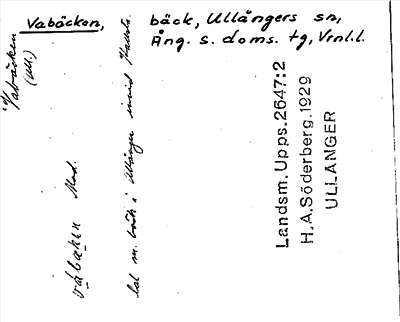 Vabäcken, bäck, Ullångers sn,
Ång. s. doms. tg, Vrnl.l.
Vabäcken
(Ull.)
vábæken Mod.
bäck i Ullånger invid
Landsm. Upps. 2647:2
H.A. Söderberg. 1929
ULLÅNGER